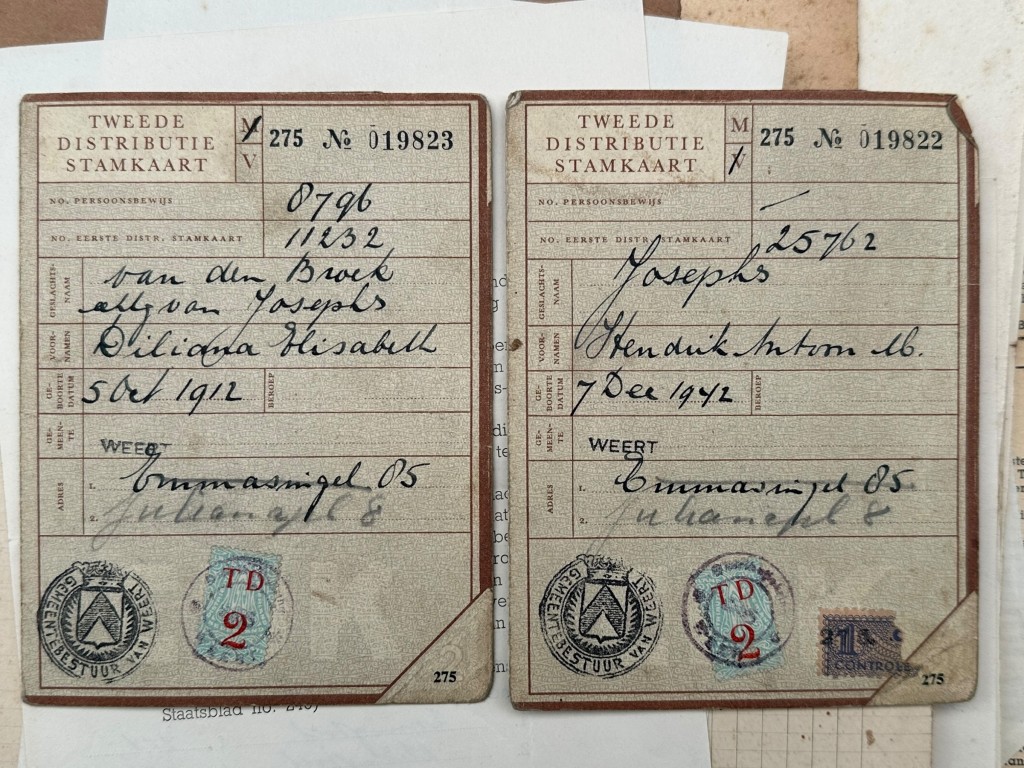 TWEEDE
DISTRIBUTIE
STAMKAART
M
V
275 No 019823
NO. PERSOONSBEWIJS
8796
NO. EERSTE DISTR. STAMKAART
11232
GESLACHTS-
NAAM
van den Broek
van Josephs
VOOR-
NAMEN
Diliana Elisabeth
GE-
BOORTE
DATUM
5 Oct 1912
BEROEP
GE-
MEEN-
TE
WEERT
ADRES
1. Emmasingel 85
2. 8
GEMEENTEBESTUUR VAN WEERT
TD
2
275
TWEEDE
DISTRIBUTIE
STAMKAART
M
V
275 No 019822
NO. PERSOONSBEWIJS
—
NO. EERSTE DISTR. STAMKAART
25762
GESLACHTS-
NAAM
Josephs
VOOR-
NAMEN
Hendrik Antoon M.
GE-
BOORTE
DATUM
7 Dec 1942
BEROEP
GE-
MEEN-
TE
WEERT
ADRES
1. Emmasingel 85
2. 8
GEMEENTEBESTUUR VAN WEERT
TD
2
1
CONTROLE
275
Staatsblad no.